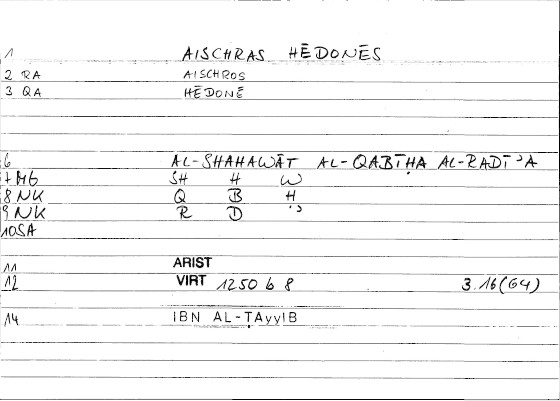 1 AISCHRAS HĒDONĒS
2 RA AISCHROS
3 QA HĒDONĒ
6 AL-SHAHAWĀT AL-QABĪḤA AL-RADĪʾA
7 MG SH H W
8 NK Q B Ḥ
9 NK R D ʾ
10 SA
11 ARIST
12 VIRT 1250 b 8 3.16(G4)
14 IBN AL-ṬAyyIB